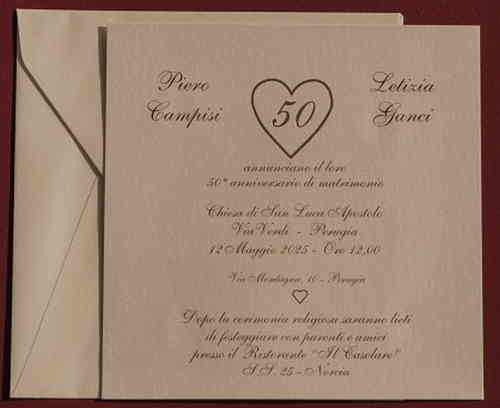 Piero
Campisi
50
Letizia
Ganci
annunciano il loro
50° anniversario di matrimonio
Chiesa di San Luca Apostolo
Via Verdi - Perugia
12 Maggio 2025 - Ore 12,00
Via Montagna, 10 - Perugia
Dopo la cerimonia religiosa saranno lieti
di festeggiare con parenti e amici
presso il Ristorante "Il Casolare"
S.S. 25 - Norcia